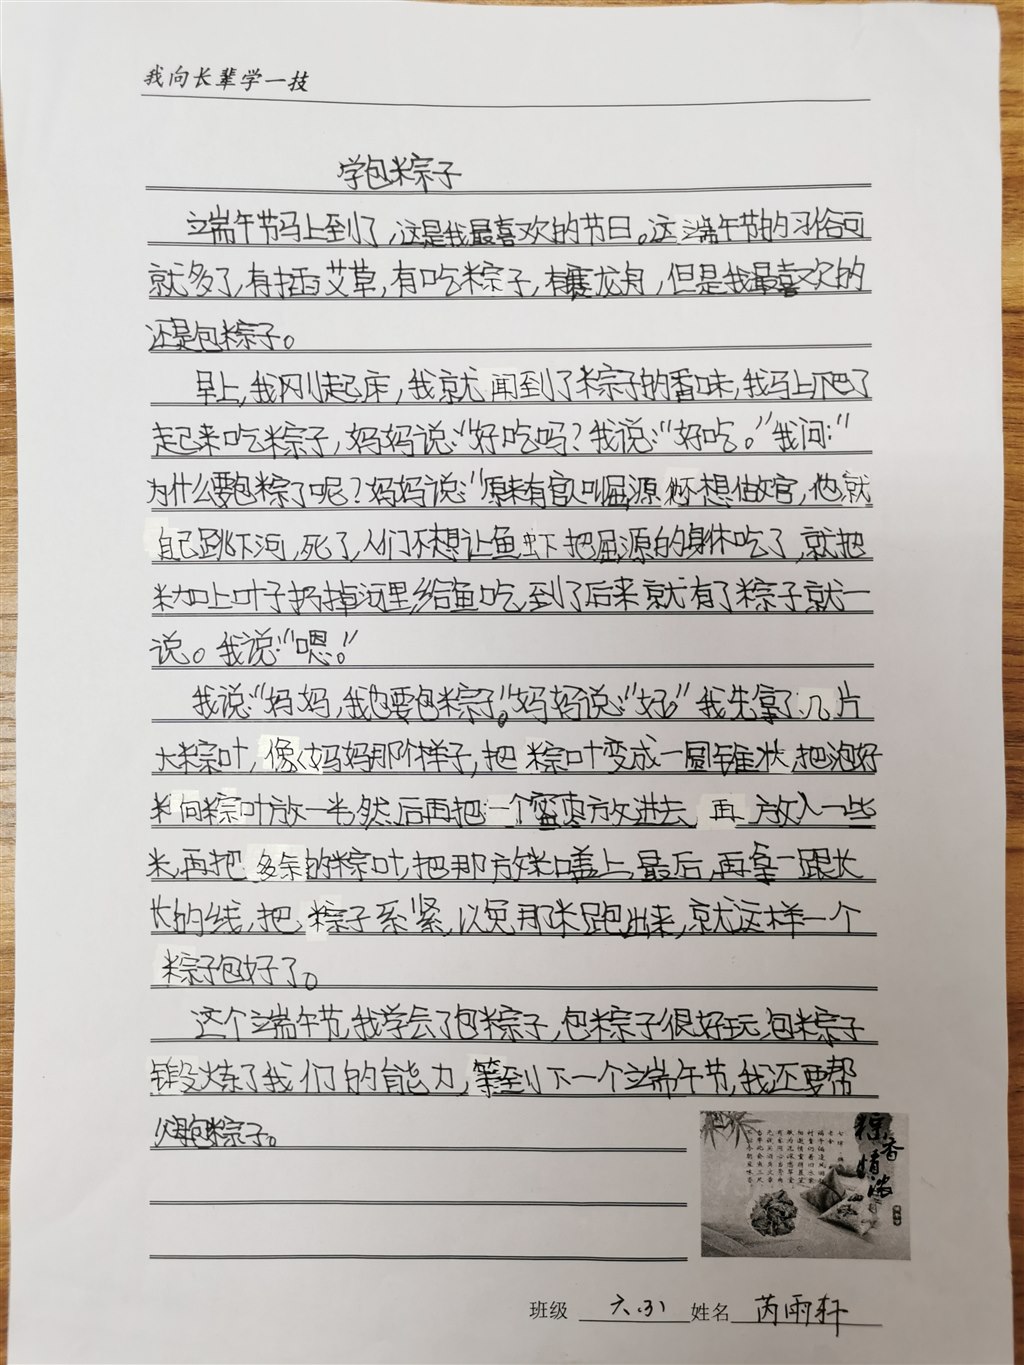 我向长辈学一技
学包粽子
端午节马上到了,这是我最喜欢的节日。这端午节的习俗可
就多了,有插艾草,有吃粽子,有赛龙舟,但是我最喜欢的
还是包粽子。
早上,我刚起床,我就闻到了粽子的香味,我马上爬了
起来吃粽子,妈妈说:“好吃吗?我说:“好吃。”我问:“
为什么要包粽子呢?妈妈说:“原来有官人叫屈原不想做官,他就
自己跳下河,死了,人们不想让鱼虾把屈源的身体吃了,就把
米加上叶子扔掉河里给鱼吃,到了后来就有了粽子就一
说。我说:“嗯。”
我说:“妈妈,我也要包粽子。”妈妈说:“好。”我先拿了几片
大粽叶,像妈妈那个样子,把粽叶变成一圆锥状,把泡好
米向粽叶放一半然后再把一个蜜枣放进去,再放入一些
米,再把多余的粽叶,把那放米口盖上,最后,再拿一跟长
长的线,把粽子系紧,以免那米跑出来,就这样一个
粽子包好了。
这个端午节,我学会了包粽子,包粽子很好玩,包粽子
锻炼了我们的能力,等到下一个端午节,我还要帮
父母包粽子。
粽香情浓
班级 六.(3) 姓名 芮雨轩